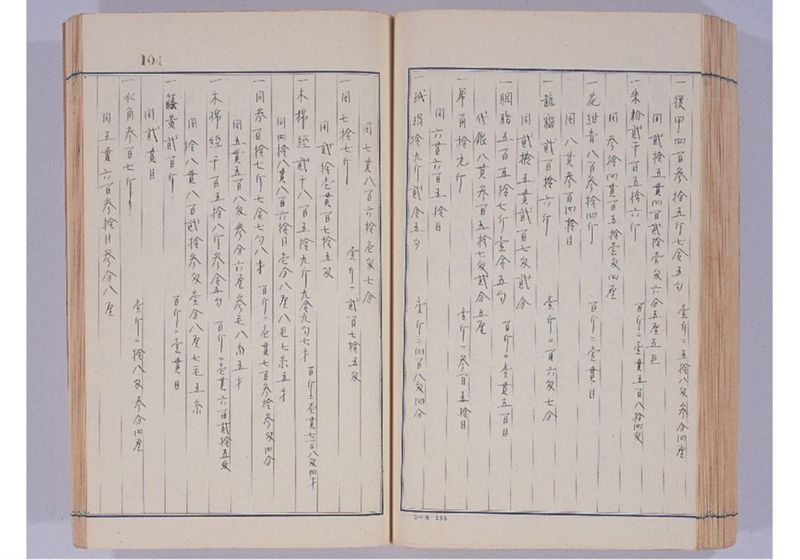 一復甲四百參拾五斤七合五勺 壹斤ニ五拾八匁參分四厘
同貳拾五貫四百貳拾壹匁六分五厘五毛
一朱粉貳千百五拾六斤 百斤ニ壹貫五百八拾四匁
同參拾四貫百五拾壹匁四厘
一花紺青八百參拾四斤 百斤ニ壹貫目
同八貫參百四拾目
一龍脳貳百拾六斤 壹斤ニ百六匁七分
同貳拾五貫貳百七匁貳分
一胭脂五百五拾七斤壹合五勺 百斤ニ壹貫五百目
代銀八貫參百五拾七匁貳分五厘
一犀角拾九斤 壹斤ニ參百五拾目
同六貫六百五拾目
一玳瑁拾九斤貳合五勺 壹斤ニ四百八匁四分
同七貫八百六拾壹匁七分
一同七拾七斤 壹斤ニ貳百七拾五匁
同貳拾壹貫百七拾五匁
一木棉経貳千八百五拾九斤九合九勺七才 百斤ニ壹貫七百八匁四才
同四拾八貫八百六拾目壹分八厘八毛七糸五才
一同参百拾七斤七合七勺八才 百斤ニ壹貫七百参拾参匁四分
同五貫五百八匁参分六厘参毛八糸五才
一木棉経千百五拾八斤参合五勺 百斤ニ壹貫六百貳拾五匁
同拾八貫八百貳拾参匁壹分八厘七毛五糸
一藤黄貳百斤 百斤ニ壹貫目
同貳貫目
一水角参百七斤 壹斤ニ拾八匁参分四厘
同五貫六百参拾目参分八厘